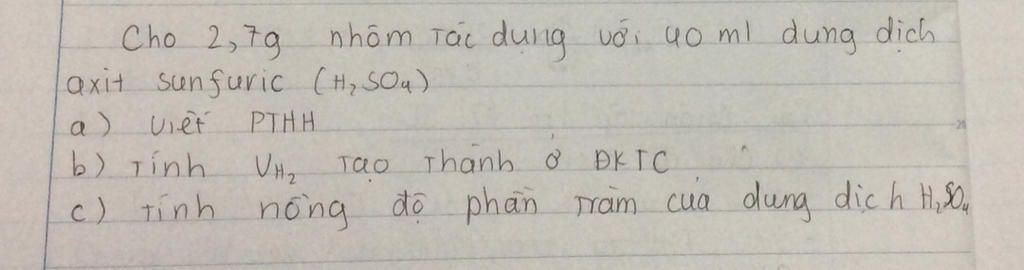 Cho 2,7g nhôm tác dụng với 40 ml dung dịch
axit sunfuric (H₂SO₄)
a) Viết PTHH
b) Tính V_H₂ tạo thành ở ĐKTC
c) Tính nồng độ phần trăm của dung dịch H₂SO₄